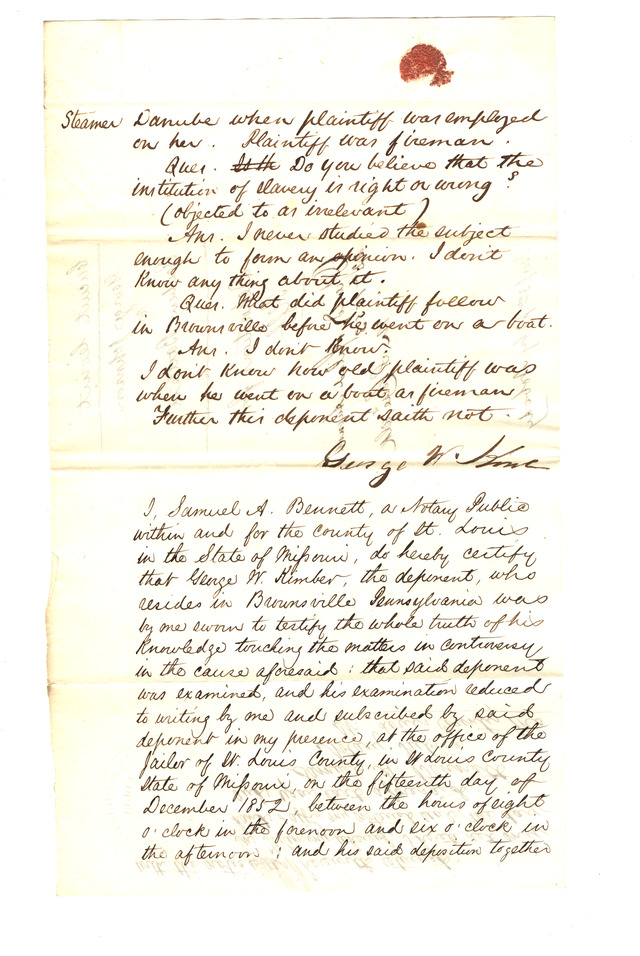 Steamer Danube when plaintiff was employed
on her. Plaintiff was fireman.
Ques. Is th Do you believe that the
institution of slavery is right or wrong?
(objected to as irrelevant)
Ans. I never studied the subject
enough to form an opinion. I don't
know any thing about it.
Ques. What did plaintiff follow
in Brownsville before he went on a boat.
Ans. I don't know.
I don't know how old plaintiff was
when he went on a boat as fireman
Further this deponent saith not.
George W.
I, Samuel A. Bennett, a Notary Public
within and for the county of St. Louis
in the State of Missouri, do hereby certify
that George W. Kimber, the deponent, who
resides in Brownsville Pennsylvania was
by me sworn to testify the whole truth of his
knowledge touching the matters in controversy
in the cause aforesaid: that said deponent
was examined, and his examination reduced
to writing by me and subscribed by said
deponent in my presence, at the office of the
Jailor of St. Louis County, in St Louis County
State of Missouri, on the fifteenth day of
December 1852, between the hours of eight
o'clock in the forenoon and six o'clock in
the afternoon; and his said deposition together